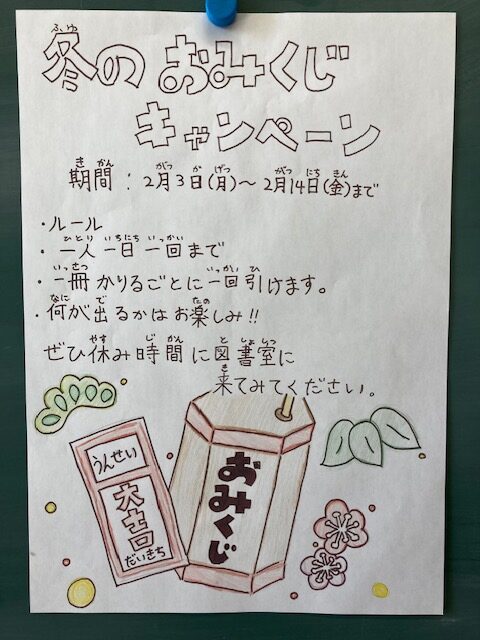 冬のおみくじ
キャンペーン
期間:2月3日(月)~2月14日(金)まで
・ルール
・一人一日一回まで
・一冊かりるごとに一回引けます。
・何が出るかはお楽しみ!!
ぜひ休み時間に図書室に
来てみてください。
うんせい
大吉
だいきち
おみくじ